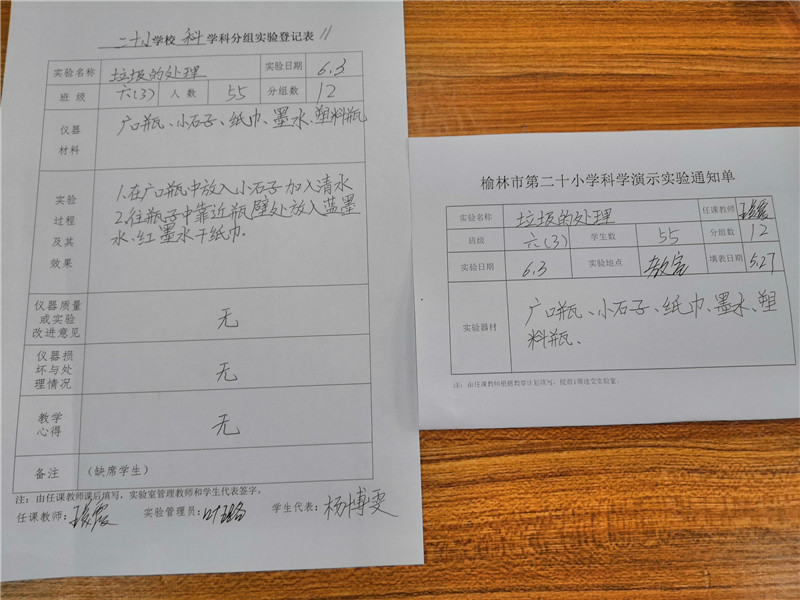 二十小学校 科 学科分组实验登记表 11
实验名称 垃圾的处理 实验日期 6.3
班级 六(3) 人数 55 分组数 12
仪器材料 广口瓶、小石子、纸巾、墨水、塑料瓶
实验过程及其效果
1.在广口瓶中放入小石子加入清水
2.往瓶子中靠近瓶壁处放入蓝墨
水、红墨水干纸巾.
仪器质量或实验改进意见 无
仪器损坏与处理情况 无
教学心得 无
备注 (缺席学生)
注:由任课教师课后填写,实验室管理教师和学生代表签字。
任课教师: 实验管理员: 学生代表:杨博雯
榆林市第二十小学科学演示实验通知单
实验名称 垃圾的处理 任课教师
班级 六(3) 学生数 55 分组数 12
实验日期 6.3 实验地点 教室 填表日期 5.27
实验器材 广口瓶、小石子、纸巾、墨水、塑
料瓶、
注:由任课教师根据教学计划填写,提前1周送交实验室。